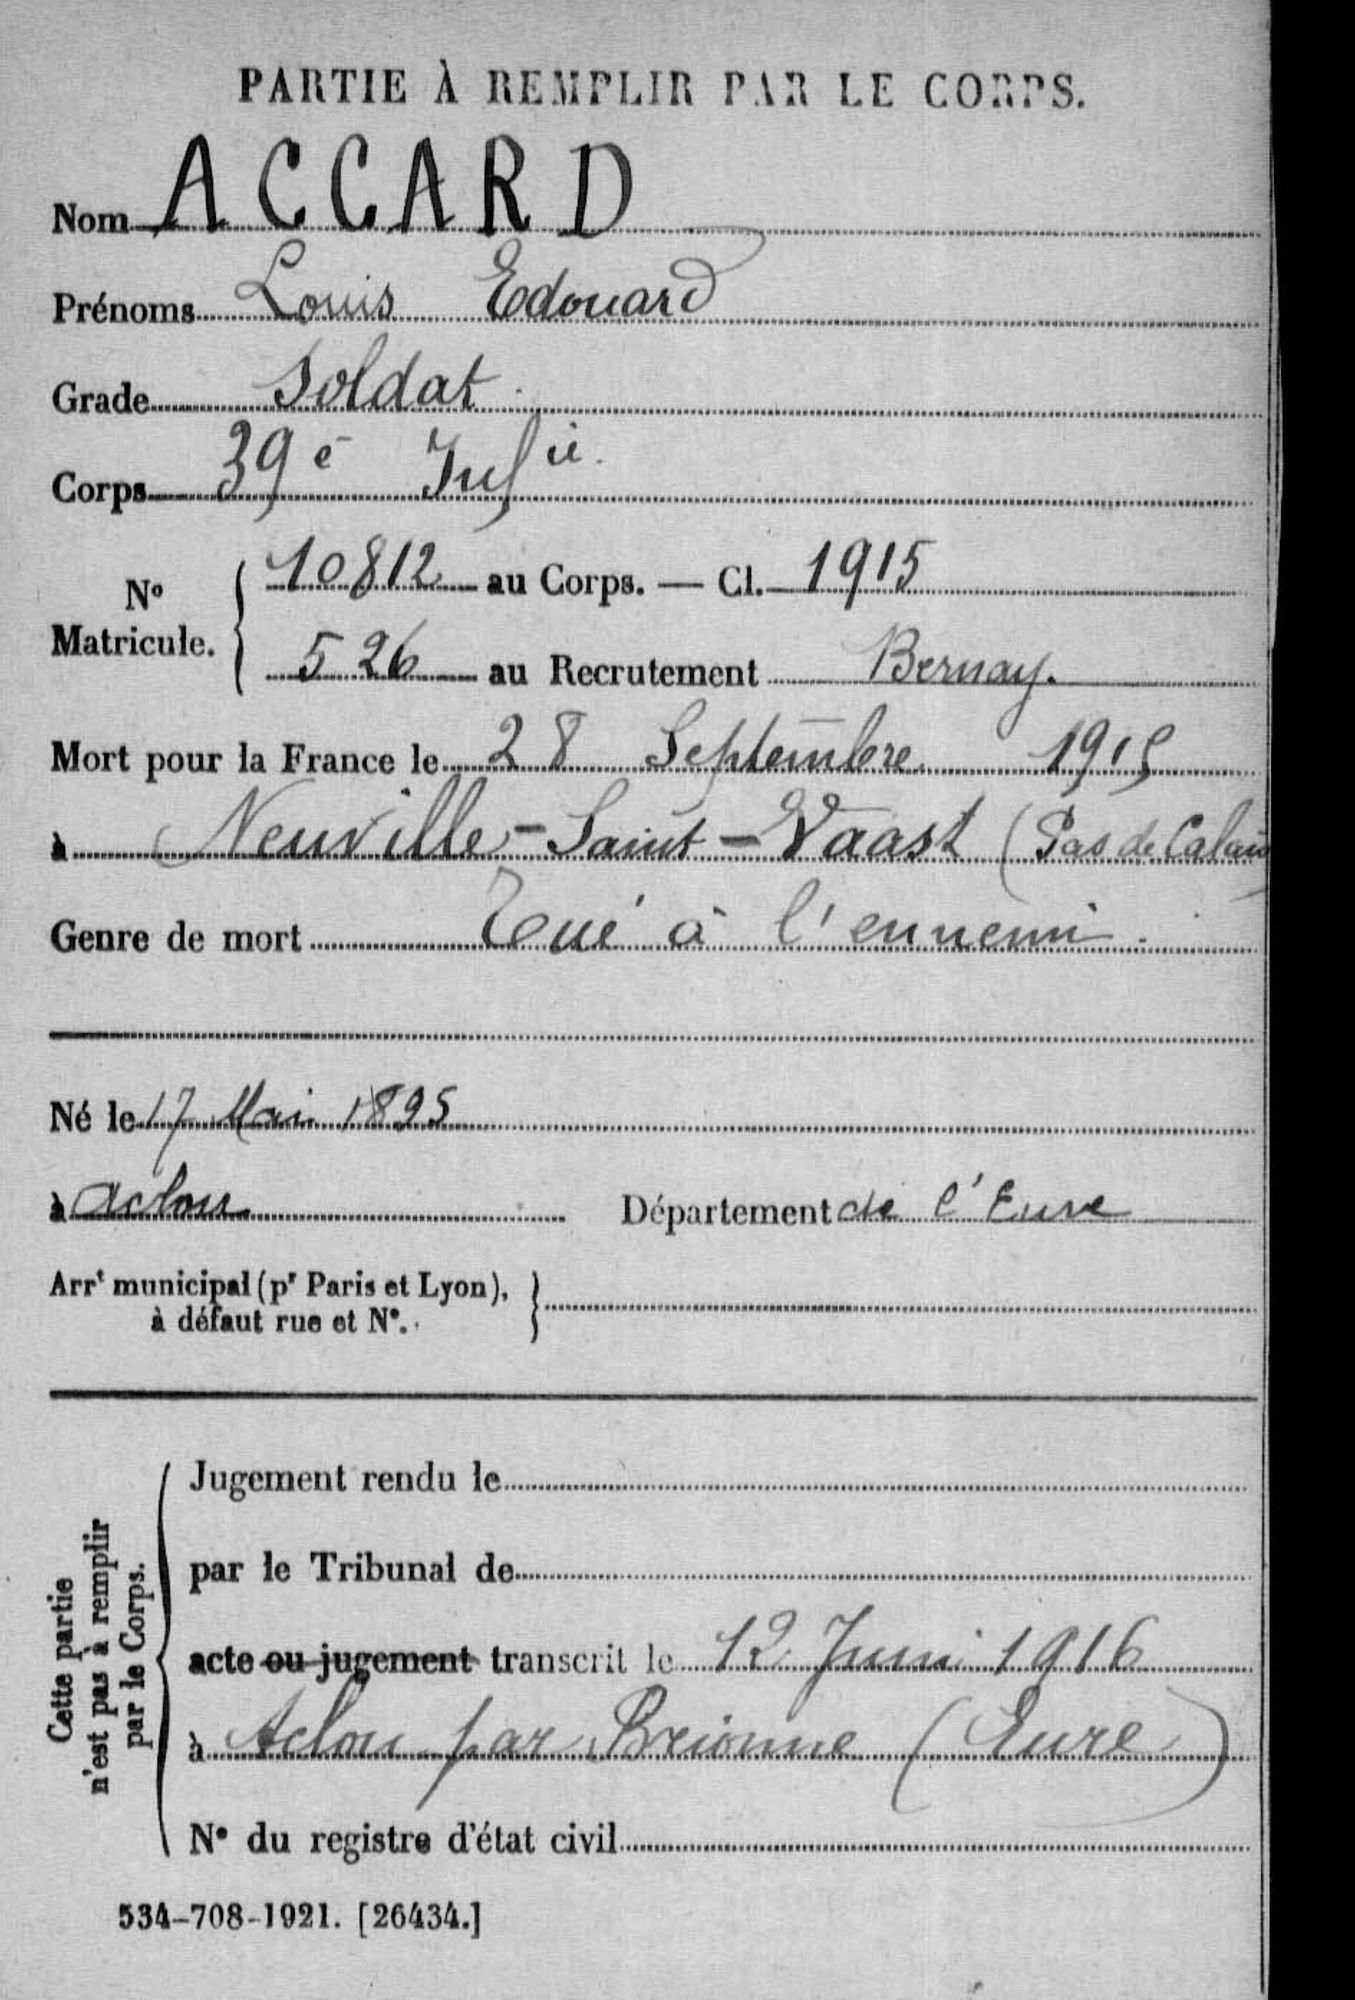 PARTIE À REMPLIR PAR LE CORPS.
Nom ACCARD
Prénoms Louis Edouard
Grade Soldat
Corps 39e Infie.
No Matricule. { 10812 au Corps. — Cl. 1915
526 au Recrutement Bernay.
Mort pour la France le 28 Septembre 1915
à Neuville-Saint-Vaast (Pas de Calais)
Genre de mort Tué à l'ennemi.
Né le 17 Mai 1895
à Aclou Département de l'Eure
Arrt municipal (pr Paris et Lyon), }
à défaut rue et N°.
Cette partie
n'est pas à remplir
par le Corps.
Jugement rendu le
par le Tribunal de
acte ou jugement transcrit le 12 Juin 1916
à Aclou par Brionne (Eure)
N° du registre d'état civil
534-708-1921. [26434.]